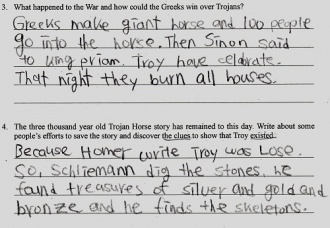 3. What happened to the War and how could the Greeks win over Trojans?
Greeks make giant horse and 100 people
go into the horse. Then Sinon said
to king priam. Troy have celebrate.
That night they burn all houses.
4. The three thousand year old Trojan Horse story has remained to this day. Write about some
people's efforts to save the story and discover the clues to show that Troy existed.
Because Homer write Troy was Lose.
So, Schliemann dig the stones. he
faind treasures of silver and gold and
bronze and he finds the skeletons.